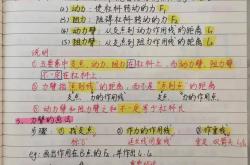 (2) 动力:使杠杆转动的力 F₁
(3) 阻力:阻碍杠杆转动的力 F₂
(4) 动力臂:从支点到动力作用线的距离 L₁
(5) 阻力臂:从支点到阻力作用线的距离 L₂
说明:
①五要素中支点、动力、阻力在杠杆上,而动力臂、阻力臂不一定在杠杆上。
②力臂指"点到线"的距离,而不是"点到点"的距离
支点 力的作用线 支点 力的作用点
③动力臂和阻力臂之和不一定等于杠杆长
3. 力臂的画法
步骤:①找支点 ②作力的作用线 ③作垂线
例:画出作用在B点的F₂,并作出L₁